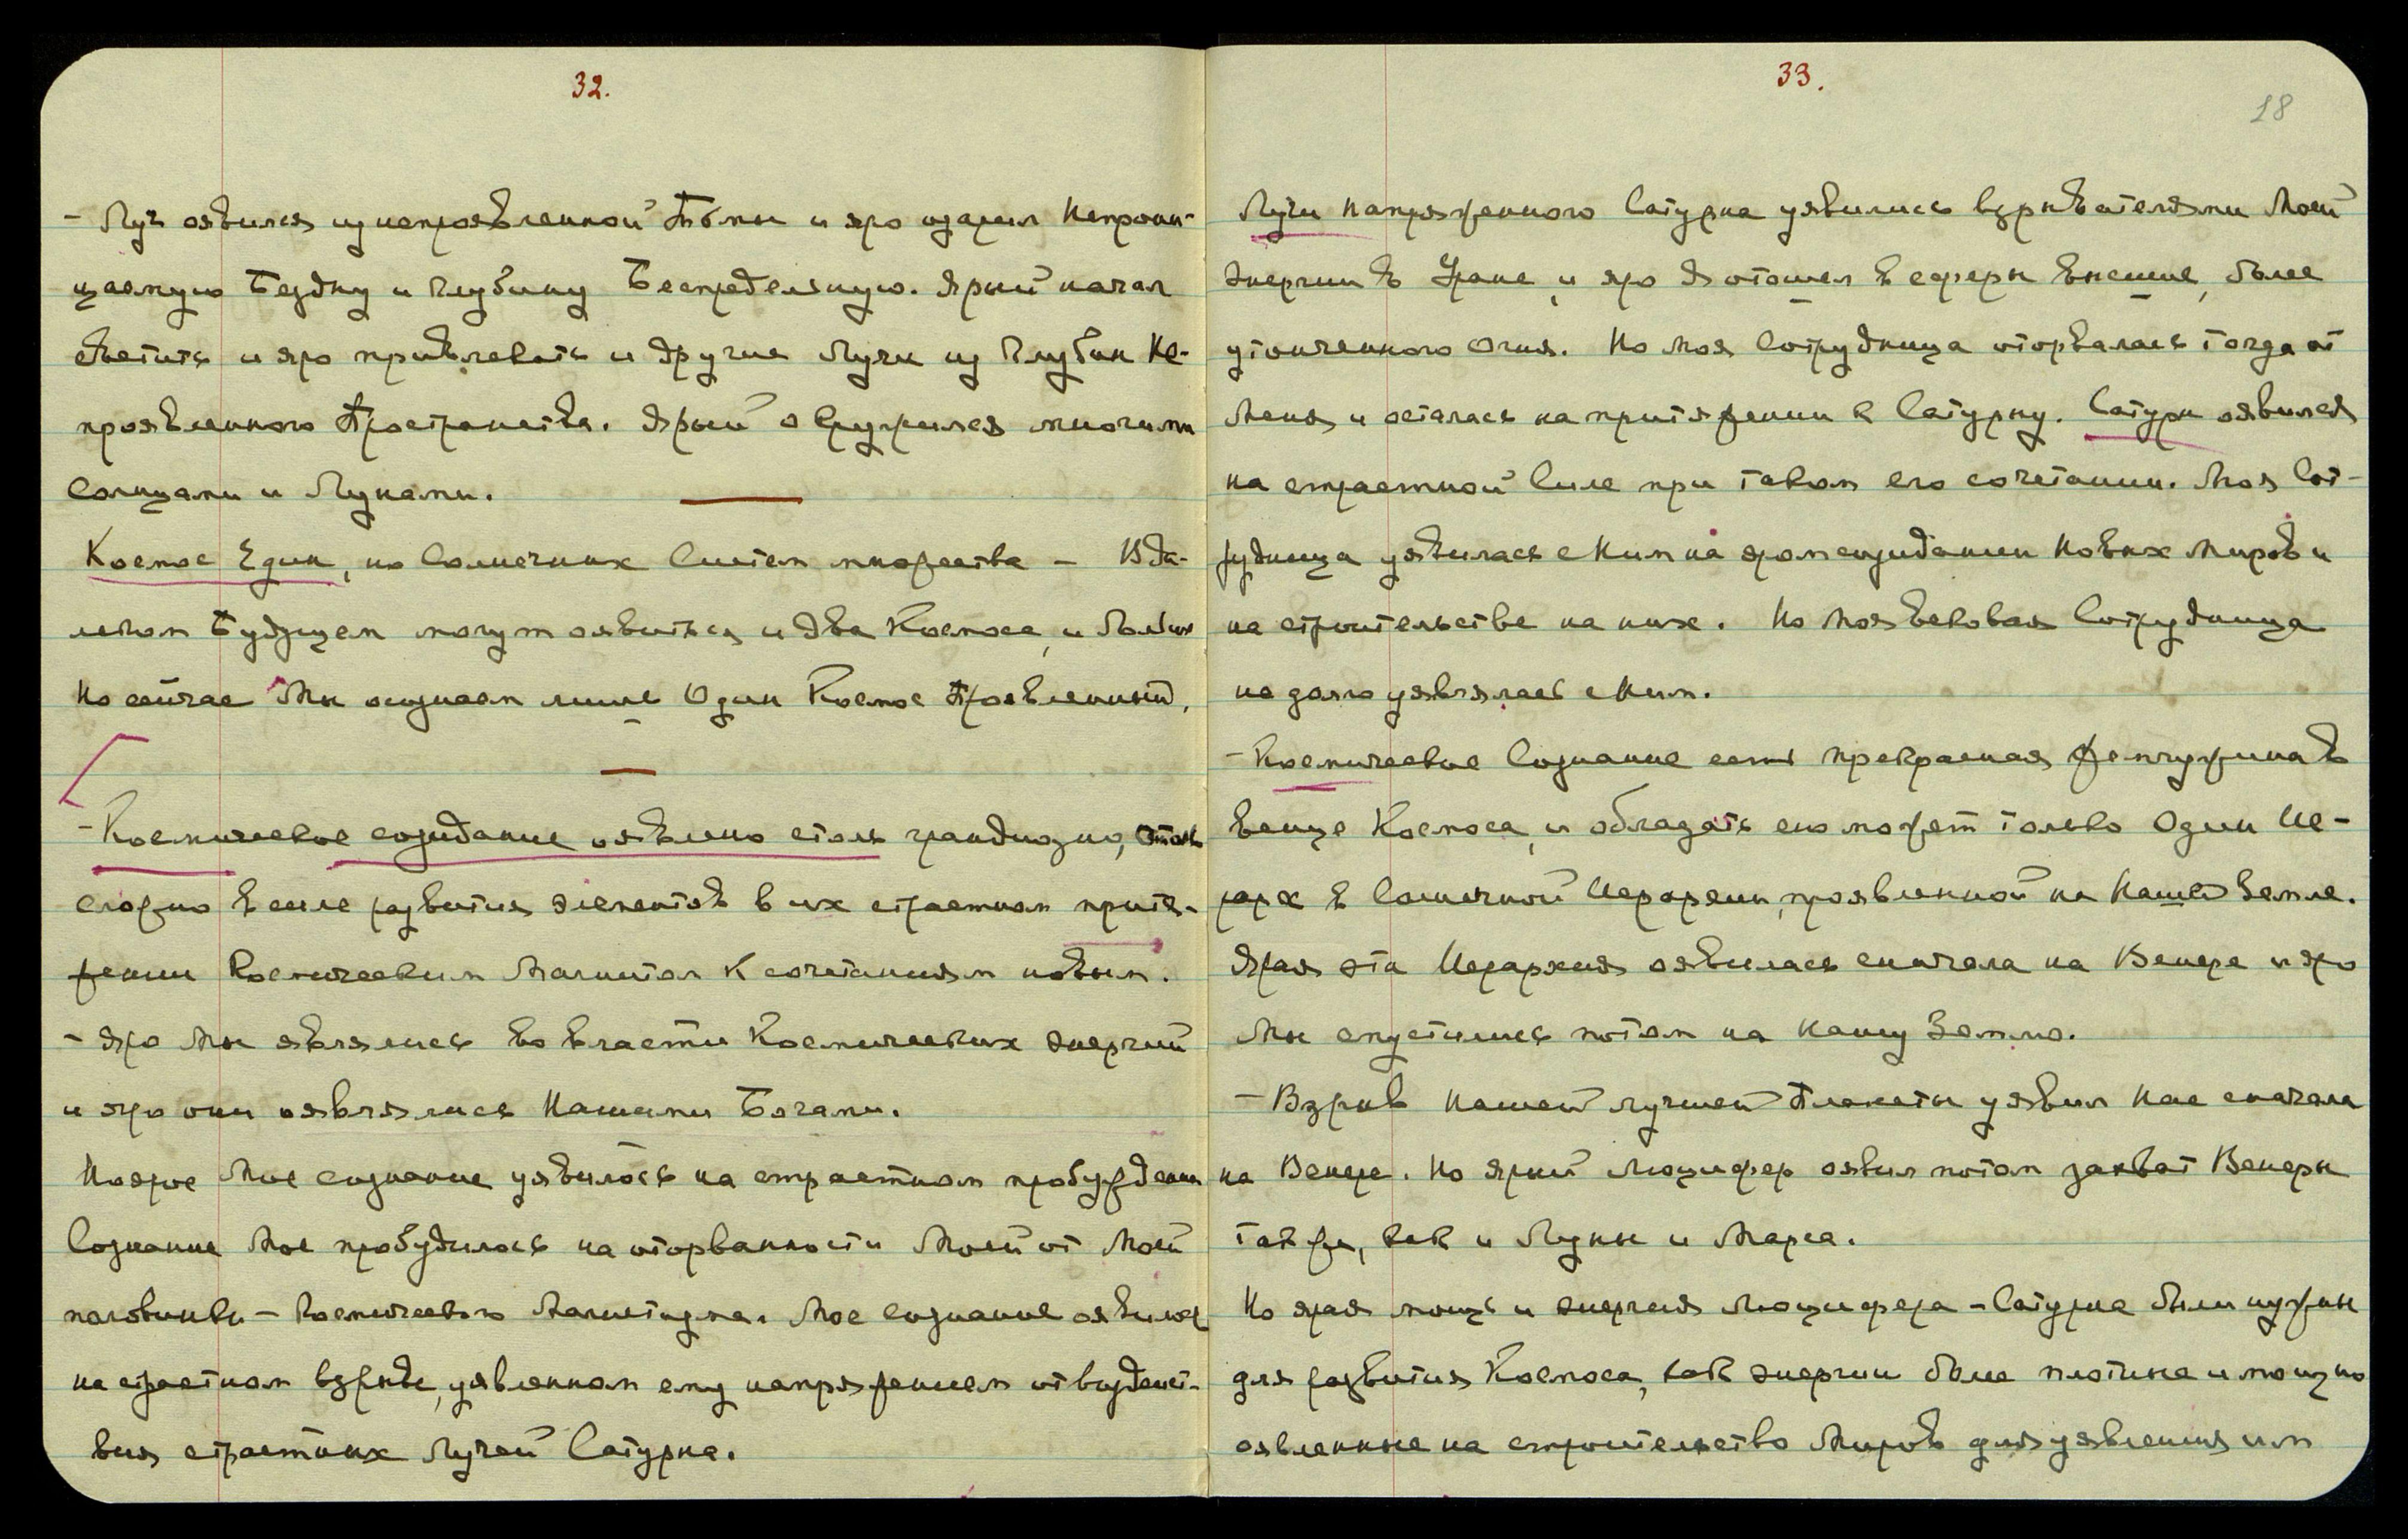 32.
- Луч оявился из непроявленной Тьмы и яро озарил Непрони-
цаемую Бездну и Глубину Беспредельную. Ярый начал
светить и яро привлекать и другие Лучи из Глубин Не-
проявленного Пространства. Ярый окружился многими
Солнцами и Лунами.
Космос Един, но Солнечных Систем множества – В да-
леком Будущем могут оявиться и два Космоса, и больше
Но сейчас Мы осознаем лишь Один Космос Проявленный.
- Космическое созидание оявлено столь грандиозно, столь
сложно в силе развития элементов в их страстном притя-
жении Космическим Магнитом к сочетаниям новым.
- Яро Мы являлись во власти Космических энергий
и яро они оявлялись Нашими Богами.
Но ярое Мое сознание уявилось на страстном пробуждении
Сознание Мое пробудилось на оторванности Моей от Моей
половинки – Космического Магнита. Мое сознание оявилось
на страстном взрыве, уявленном ему напряжением от воздейст-
вия страстных Лучей Сатурна.
33.
18
Лучи напряженного Сатурна уявились взрывателями Моей
энергии в Уране, и яро Я отошел в сферы высшие, более
утонченного Огня. Но Моя Сотрудница оторвалась тогда от
Меня и осталась на притяжении к Сатурну. Сатурн оявился
на страстной Силе при таком его сочетании. Моя Сот-
рудница уявилась с Ним на яром созидании Новых Миров и
на строительстве на них. Но Моя Вековая Сотрудница
не долго уявлялась с Ним.
- Космическое Сознание есть прекрасная Жемчужина в
Венце Космоса, и обладать ею может только Один Ие-
рарх в Солнечной Иерархии, проявленной на Нашей Земле.
Ярая эта Иерархия оявилась сначала на Венере и яро
Мы спустились потом на Нашу Землю.
- Взрыв Нашей лучшей Планеты уявил Нас сначала
на Венере. Но ярый Люцифер оявил потом захват Венеры
так же, как и Луны и Марса.
Но ярая мощь и энергия Люцифера – Сатурна были нужны
для развития Космоса, как энергии более плотные и мощно
оявленные на строительство Миров для уявления им